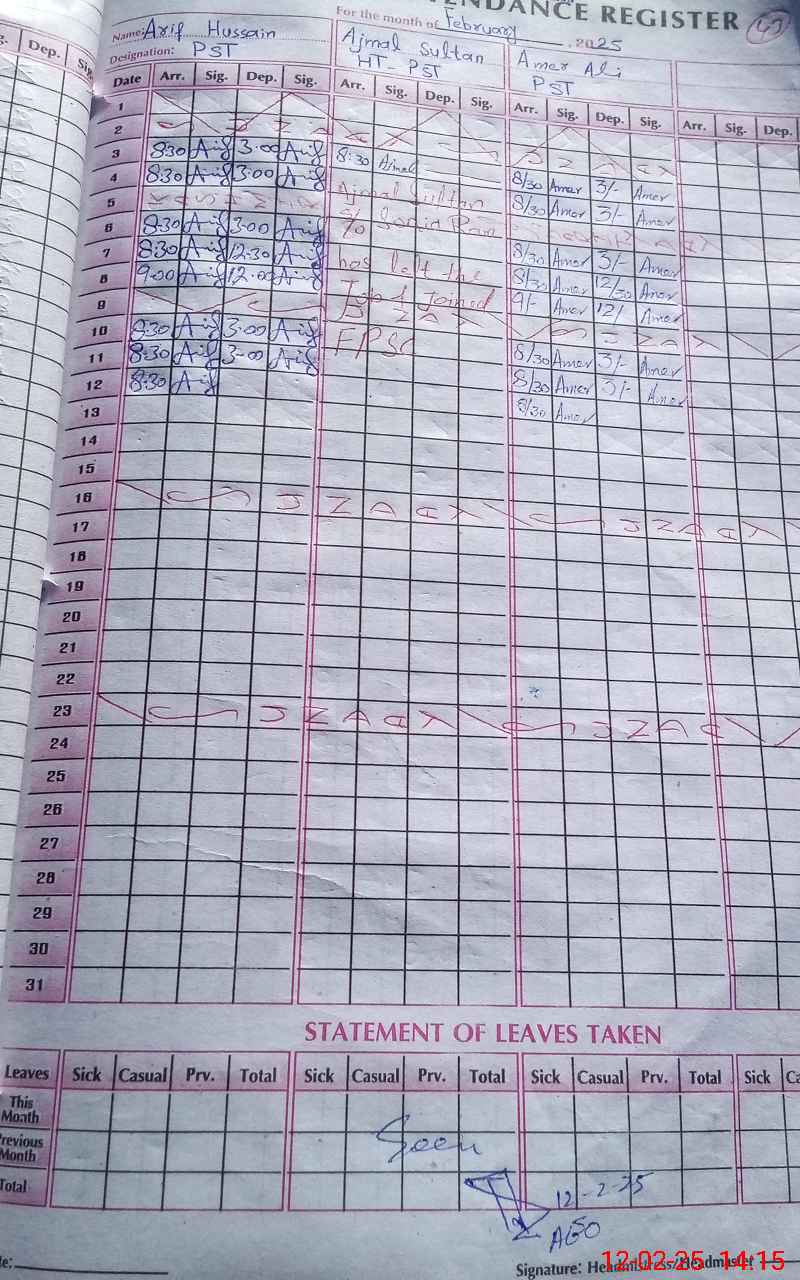 TENDANCE REGISTER
For the month of February 2025
Name: Arif Hussain
Designation: PST
Ajmal Sultan
HT - PST
Amer Ali
PST
Dep. Sig.
Date Arr. Sig. Dep. Sig. Arr. Sig. Dep. Sig. Arr. Sig. Dep. Sig. Arr. Sig. Dep.
1
2 S U N D A Y
3 8:30 Arif 3:00 Arif 8:30 Ajmal 8/30 Amer 3/- Amer
4 8:30 Arif 3:00 Arif Ajmal Sultan 8/30 Amer 3/- Amer
5
6 8:30 Arif 3:00 Arif 8/30 Amer 3/- Amer
7 8:30 Arif 12:30 Arif has left the 8/30 Amer 12/30 Amer
8 9:00 Arif 12:00 Arif Job & Joined 9/- Amer 12/ Amer
9 S U N D A Y
10 8:30 Arif 3:00 Arif FPSC 8/30 Amer 3/- Amer
11 8:30 Arif 3:00 Arif 8/30 Amer 3/- Amer
12 8:30 Arif 8/30 Amer
13
14
15
16 S U N D A Y S U N D A Y
17
18
19
20
21
22
23 S U N D A Y S U N D A Y
24
25
26
27
28
29
30
31
STATEMENT OF LEAVES TAKEN
Leaves Sick Casual Prv. Total Sick Casual Prv. Total Sick Casual Prv. Total Sick
This Month
Previous Month
Total
Seen
12-2-25
AEO
Signature: Headmistress/Headmaster
12.02.25 14:15